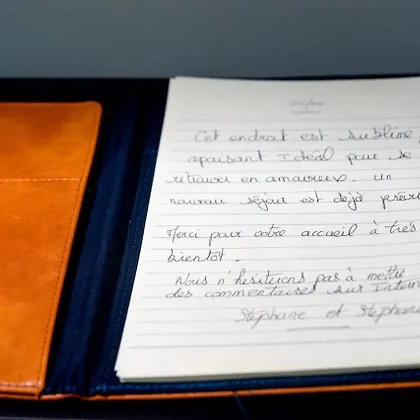 Cet endroit est sublime,
apaisant Idéal pour se
retrouver en amoureux. un
nouveau séjour est déjà prévu
Merci pour votre accueil à très
bientôt.
Nous n'hésiterons pas à mettre
des commentaires sur Internet
Stéphane et Stéphanie